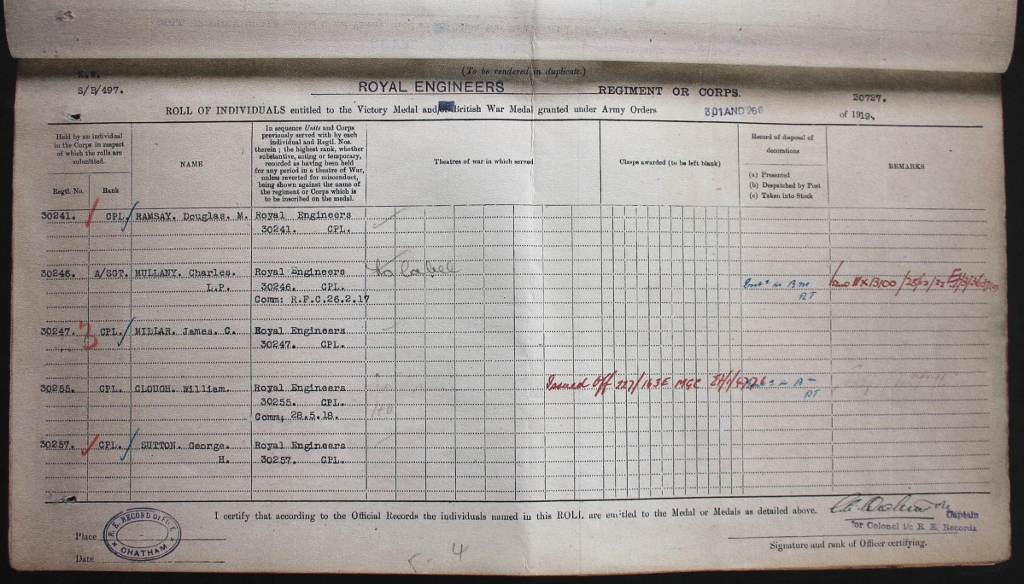 (To be rendered in duplicate.)
S/B/497.
ROYAL ENGINEERS REGIMENT OR CORPS.
20727.
ROLL OF INDIVIDUALS entitled to the Victory Medal and/or British War Medal granted under Army Orders 301AND266 of 1919.
Held by an individual
in the Corps in respect
of which the rolls are
submitted.
Regtl. No. Rank
NAME
In sequence Units and Corps
previously served with by each
individual and Regtl. Nos.
therein; the highest rank, whether
substantive, acting or temporary,
recorded as having been held
for any period in a theatre of War,
unless reverted for misconduct,
being shown against the name of
the regiment or Corps which is
to be inscribed on the medal.
Theatres of war in which served
Clasps awarded (to be left blank)
Record of disposal of
decorations
(a) Presented
(b) Despatched by Post
(c) Taken into Stock
REMARKS
30241. CPL. RAMSAY. Douglas. M. Royal Engineers
30241. CPL.
30246. A/SGT. MULLANY. Charles. Royal Engineers
L.P. 30246. CPL.
Comm: R.F.C.26.2.17
30247. CPL. MILLAR. James. C. Royal Engineers
30247. CPL.
30255. CPL. CLOUGH. William. Royal Engineers
Issued Off 227/163E MGC
30255. CPL.
Comm; 28.5.18.
30257. CPL. SUTTON. George. Royal Engineers
H. 30257. CPL.
I certify that according to the Official Records the individuals named in this ROLL are entitled to the Medal or Medals as detailed above.
Captain
for Colonel i/c R. E. Records
Signature and rank of Officer certifying.
Place
Date
R.E. RECORD OFFICE
CHATHAM
4